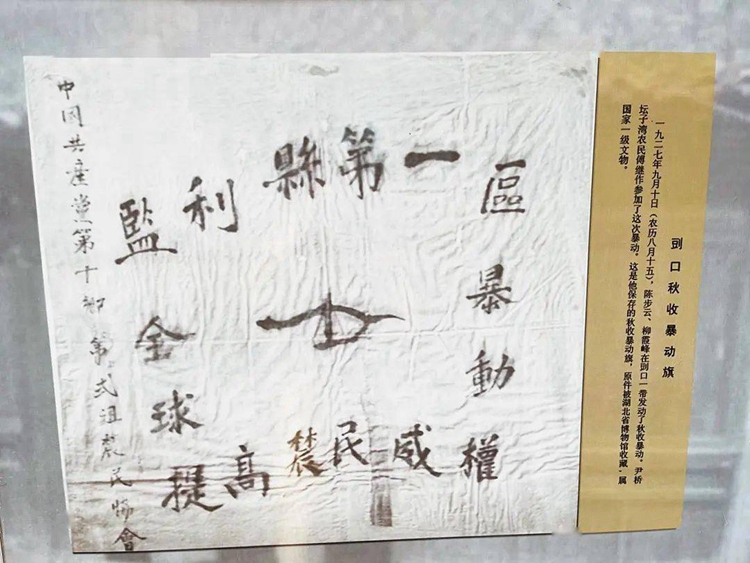 監利縣第一區暴動
全球提高辳民威權
中國共產黨第十第弍農民協會
剅口秋收暴动旗
一九二七年九月十日（农历八月十五），陈步云、柳霞峰在剅口一带发动了秋收暴动。尹桥
坛子湾农民傅继作参加了这次暴动。这是他保存的秋收暴动旗，原件被湖北省博物馆收藏·属
国家一级文物。